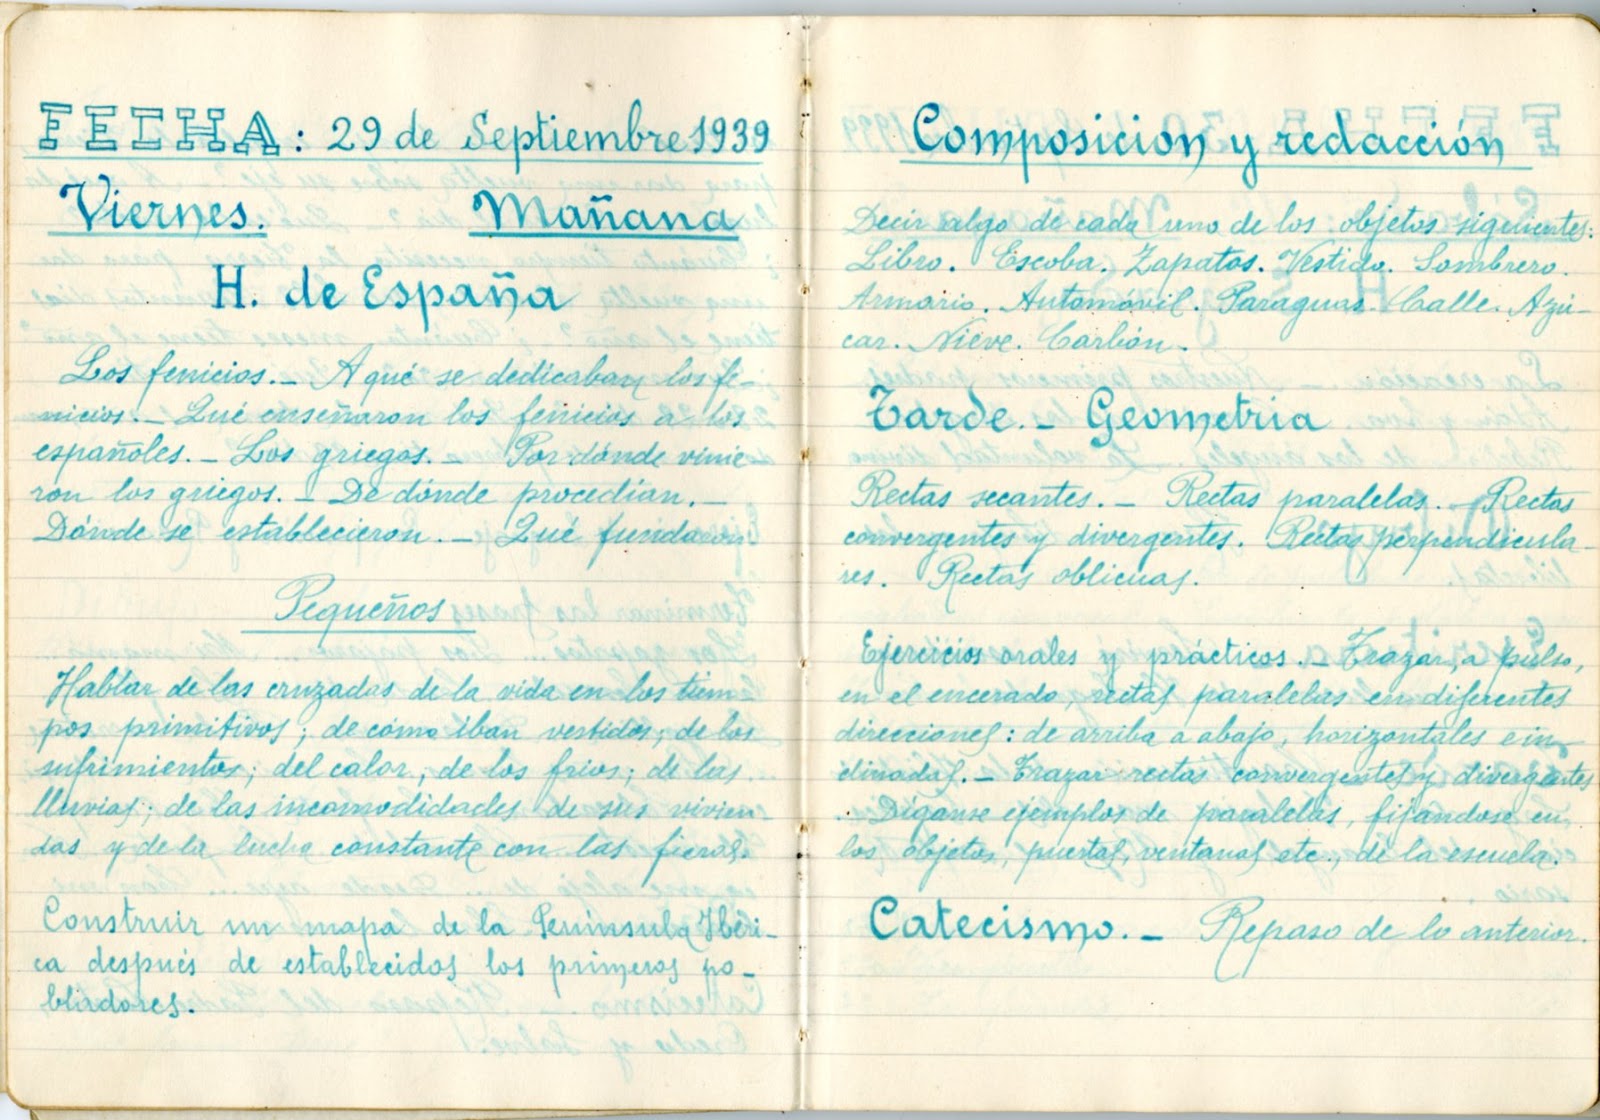 FECHA: 29 de Septiembre 1939
Viernes. Mañana
H. de España
Los fenicios.— A qué se dedicaban los fe-
nicios.— Qué enseñaron los fenicios a los
españoles.— Los griegos.— Por dónde vinie-
ron los griegos.— De dónde procedían.—
Dónde se establecieron.— Qué fundaron
Pequeños
Hablar de las cruzadas de la vida en los tiem-
pos primitivos; de cómo iban vestidos; de los
sufrimientos; del calor; de los fríos; de las
lluvias; de las incomodidades de sus vivien-
das y de la lucha constante con las fieras.
Construir un mapa de la Península Ibéri-
ca después de establecidos los primeros po-
bladores.
Composicion y redacción
Decir algo de cada uno de los objetos siguientes:
Libro. Escoba. Zapatos. Vestido. Sombrero.
Armario. Automóvil. Paraguas. Calle. Azú-
car. Nieve. Carbón.
Tarde.— Geometria
Rectas secantes.— Rectas paralelas.— Rectas
convergentes y divergentes. Rectas perpendicula-
res. Rectas oblicuas.
Ejercicios orales y prácticos.— Trazar, a pulso,
en el encerado, rectas paralelas en diferentes
direcciones: de arriba a abajo, horizontales e in-
clinadas.— Trazar rectas convergentes y divergentes
. Díganse ejemplos de paralelas, fijándose en
los objetos, puertas, ventanas etc., de la escuela.
Catecismo.— Repaso de lo anterior.